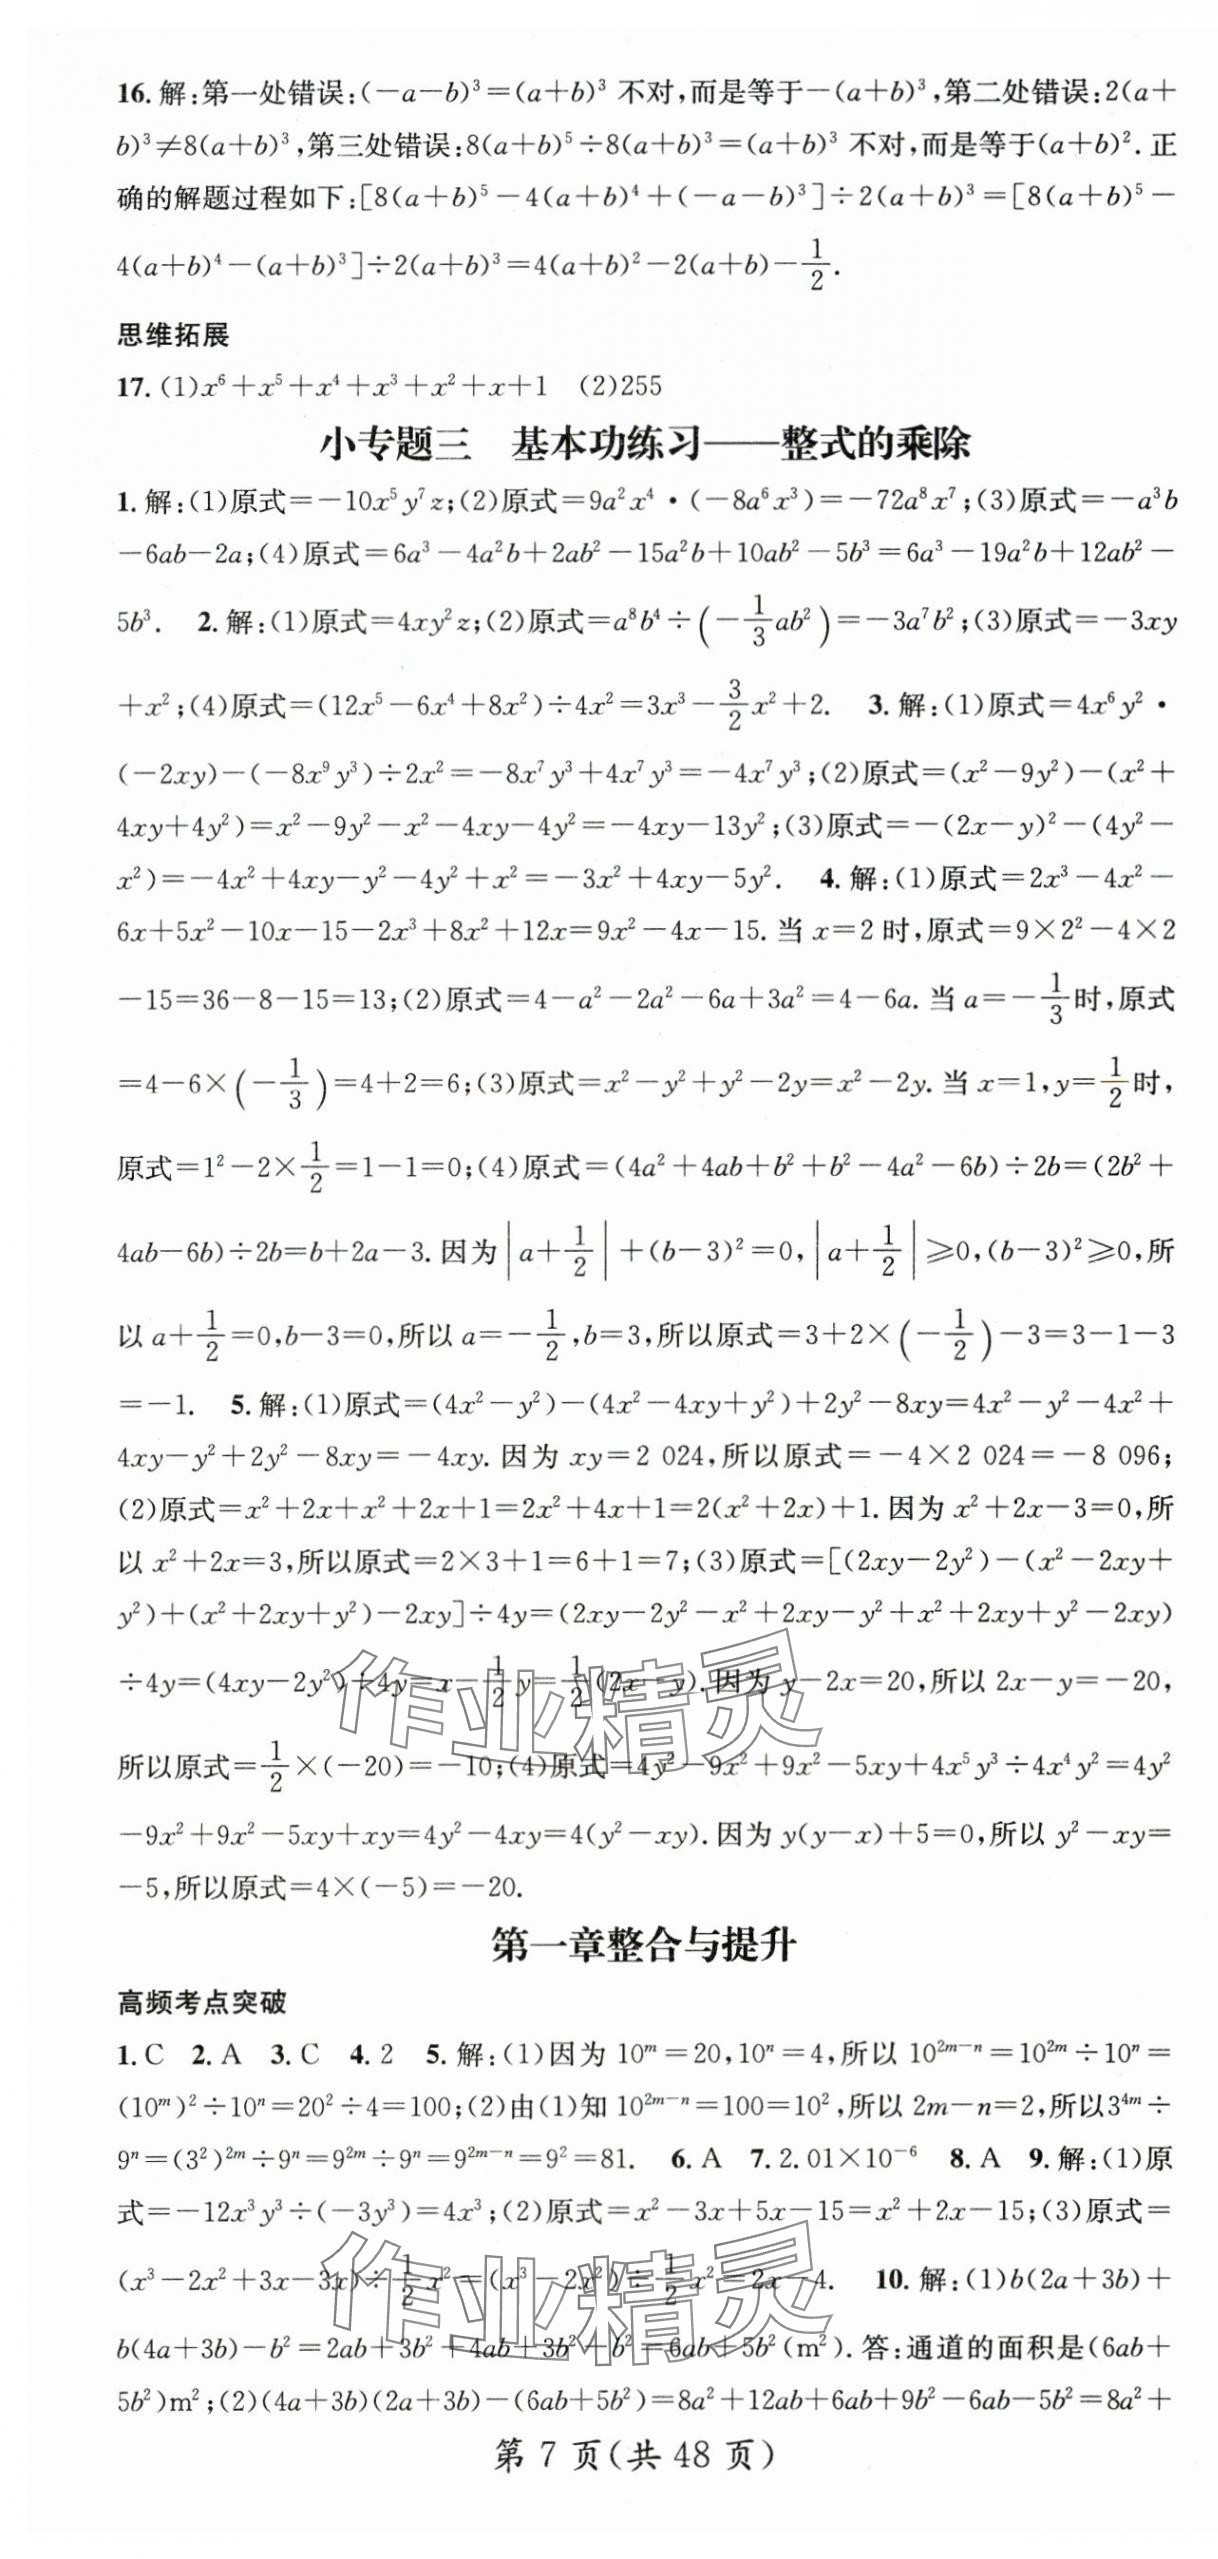 16.解:第一处错误:(－a－b)³＝(a＋b)³ 不对,而是等于－(a＋b)³,第二处错误:2(a＋
b)³≠8(a＋b)³,第三处错误:8(a＋b)⁵÷8(a＋b)³＝(a＋b)³ 不对,而是等于(a＋b)².正
确的解题过程如下:[8(a＋b)⁵－4(a＋b)⁴＋(－a－b)³]÷2(a＋b)³＝[8(a＋b)⁵－
4(a＋b)⁴－(a＋b)³]÷2(a＋b)³＝4(a＋b)²－2(a＋b)－1/2.
思维拓展
17.(1)x⁶＋x⁵＋x⁴＋x³＋x²＋x＋1 (2)255
小专题三 基本功练习——整式的乘除
1.解:(1)原式＝－10x⁵y⁷z;(2)原式＝9a²x⁴·(－8a⁶x³)＝－72a⁸x⁷;(3)原式＝－a³b
－6ab－2a;(4)原式＝6a³－4a²b＋2ab²－15a²b＋10ab²－5b³＝6a³－19a²b＋12ab²－
5b³. 2.解:(1)原式＝4xy²z;(2)原式＝a⁸b⁴÷(－1/3ab²)＝－3a⁷b²;(3)原式＝－3xy
＋x²;(4)原式＝(12x⁵－6x⁴＋8x²)÷4x²＝3x³－3/2x²＋2. 3.解:(1)原式＝4x⁶y²·
(－2xy)－(－8x⁹y³)÷2x²＝－8x⁷y³＋4x⁷y³＝－4x⁷y³;(2)原式＝(x²－9y²)－(x²＋
4xy＋4y²)＝x²－9y²－x²－4xy－4y²＝－4xy－13y²;(3)原式＝－(2x－y)²－(4y²－
x²)＝－4x²＋4xy－y²－4y²＋x²＝－3x²＋4xy－5y². 4.解:(1)原式＝2x³－4x²－
6x＋5x²－10x－15－2x³＋8x²＋12x＝9x²－4x－15.当 x＝2 时,原式＝9×2²－4×2
－15＝36－8－15＝13;(2)原式＝4－a²－2a²－6a＋3a²＝4－6a.当 a＝－1/3时,原式
＝4－6×(－1/3)＝4＋2＝6;(3)原式＝x²－y²＋y²－2y＝x²－2y.当 x＝1,y＝1/2时,
原式＝1²－2×1/2＝1－1＝0;(4)原式＝(4a²＋4ab＋b²＋b²－4a²－6b)÷2b＝(2b²＋
4ab－6b)÷2b＝b＋2a－3.因为|a＋1/2|＋(b－3)²＝0,|a＋1/2|≥0,(b－3)²≥0,所
以 a＋1/2＝0,b－3＝0,所以 a＝－1/2,b＝3,所以原式＝3＋2×(－1/2)－3＝3－1－3
＝－1. 5.解:(1)原式＝(4x²－y²)－(4x²－4xy＋y²)＋2y²－8xy＝4x²－y²－4x²＋
4xy－y²＋2y²－8xy＝－4xy.因为 xy＝2 024,所以原式＝－4×2 024＝－8 096;
(2)原式＝x²＋2x＋x²＋2x＋1＝2x²＋4x＋1＝2(x²＋2x)＋1.因为 x²＋2x－3＝0,所
以 x²＋2x＝3,所以原式＝2×3＋1＝6＋1＝7;(3)原式＝[(2xy－2y²)－(x²－2xy＋
y²)＋(x²＋2xy＋y²)－2xy]÷4y＝(2xy－2y²－x²＋2xy－y²＋x²＋2xy＋y²－2xy)
÷4y＝(4xy－2y²)÷4y＝x－1/2y＝1/2(2x－y).因为 y－2x＝20,所以 2x－y＝－20,
所以原式＝1/2×(－20)＝－10;(4)原式＝4y²－9x²＋9x²－5xy＋4x⁵y³÷4x⁴y²＝4y²
－9x²＋9x²－5xy＋xy＝4y²－4xy＝4(y²－xy).因为 y(y－x)＋5＝0,所以 y²－xy＝
－5,所以原式＝4×(－5)＝－20.
第一章整合与提升
高频考点突破
1.C 2.A 3.C 4.2 5.解:(1)因为 10ᵐ＝20,10ⁿ＝4,所以 10²ᵐ⁻ⁿ＝10²ᵐ÷10ⁿ＝
(10ᵐ)²÷10ⁿ＝20²÷4＝100;(2)由(1)知 10²ᵐ⁻ⁿ＝100＝10²,所以 2m－n＝2,所以3⁴ᵐ÷
9ⁿ＝(3²)²ᵐ÷9ⁿ＝9²ᵐ÷9ⁿ＝9²ᵐ⁻ⁿ＝9²＝81. 6.A 7.2.01×10⁻⁶ 8.A 9.解:(1)原
式＝－12x³y³÷(－3y³)＝4x³;(2)原式＝x²－3x＋5x－15＝x²＋2x－15;(3)原式＝
(x³－2x²＋3x－3x)÷1/2x²＝(x³－2x²)÷1/2x²＝2x－4. 10.解:(1)b(2a＋3b)＋
b(4a＋3b)－b²＝2ab＋3b²＋4ab＋3b²－b²＝6ab＋5b²(m²).答:通道的面积是(6ab＋
5b²)m²;(2)(4a＋3b)(2a＋3b)－(6ab＋5b²)＝8a²＋12ab＋6ab＋9b²－6ab－5b²＝8a²＋
第 7 页(共 48 页)
作业精灵
作业精灵